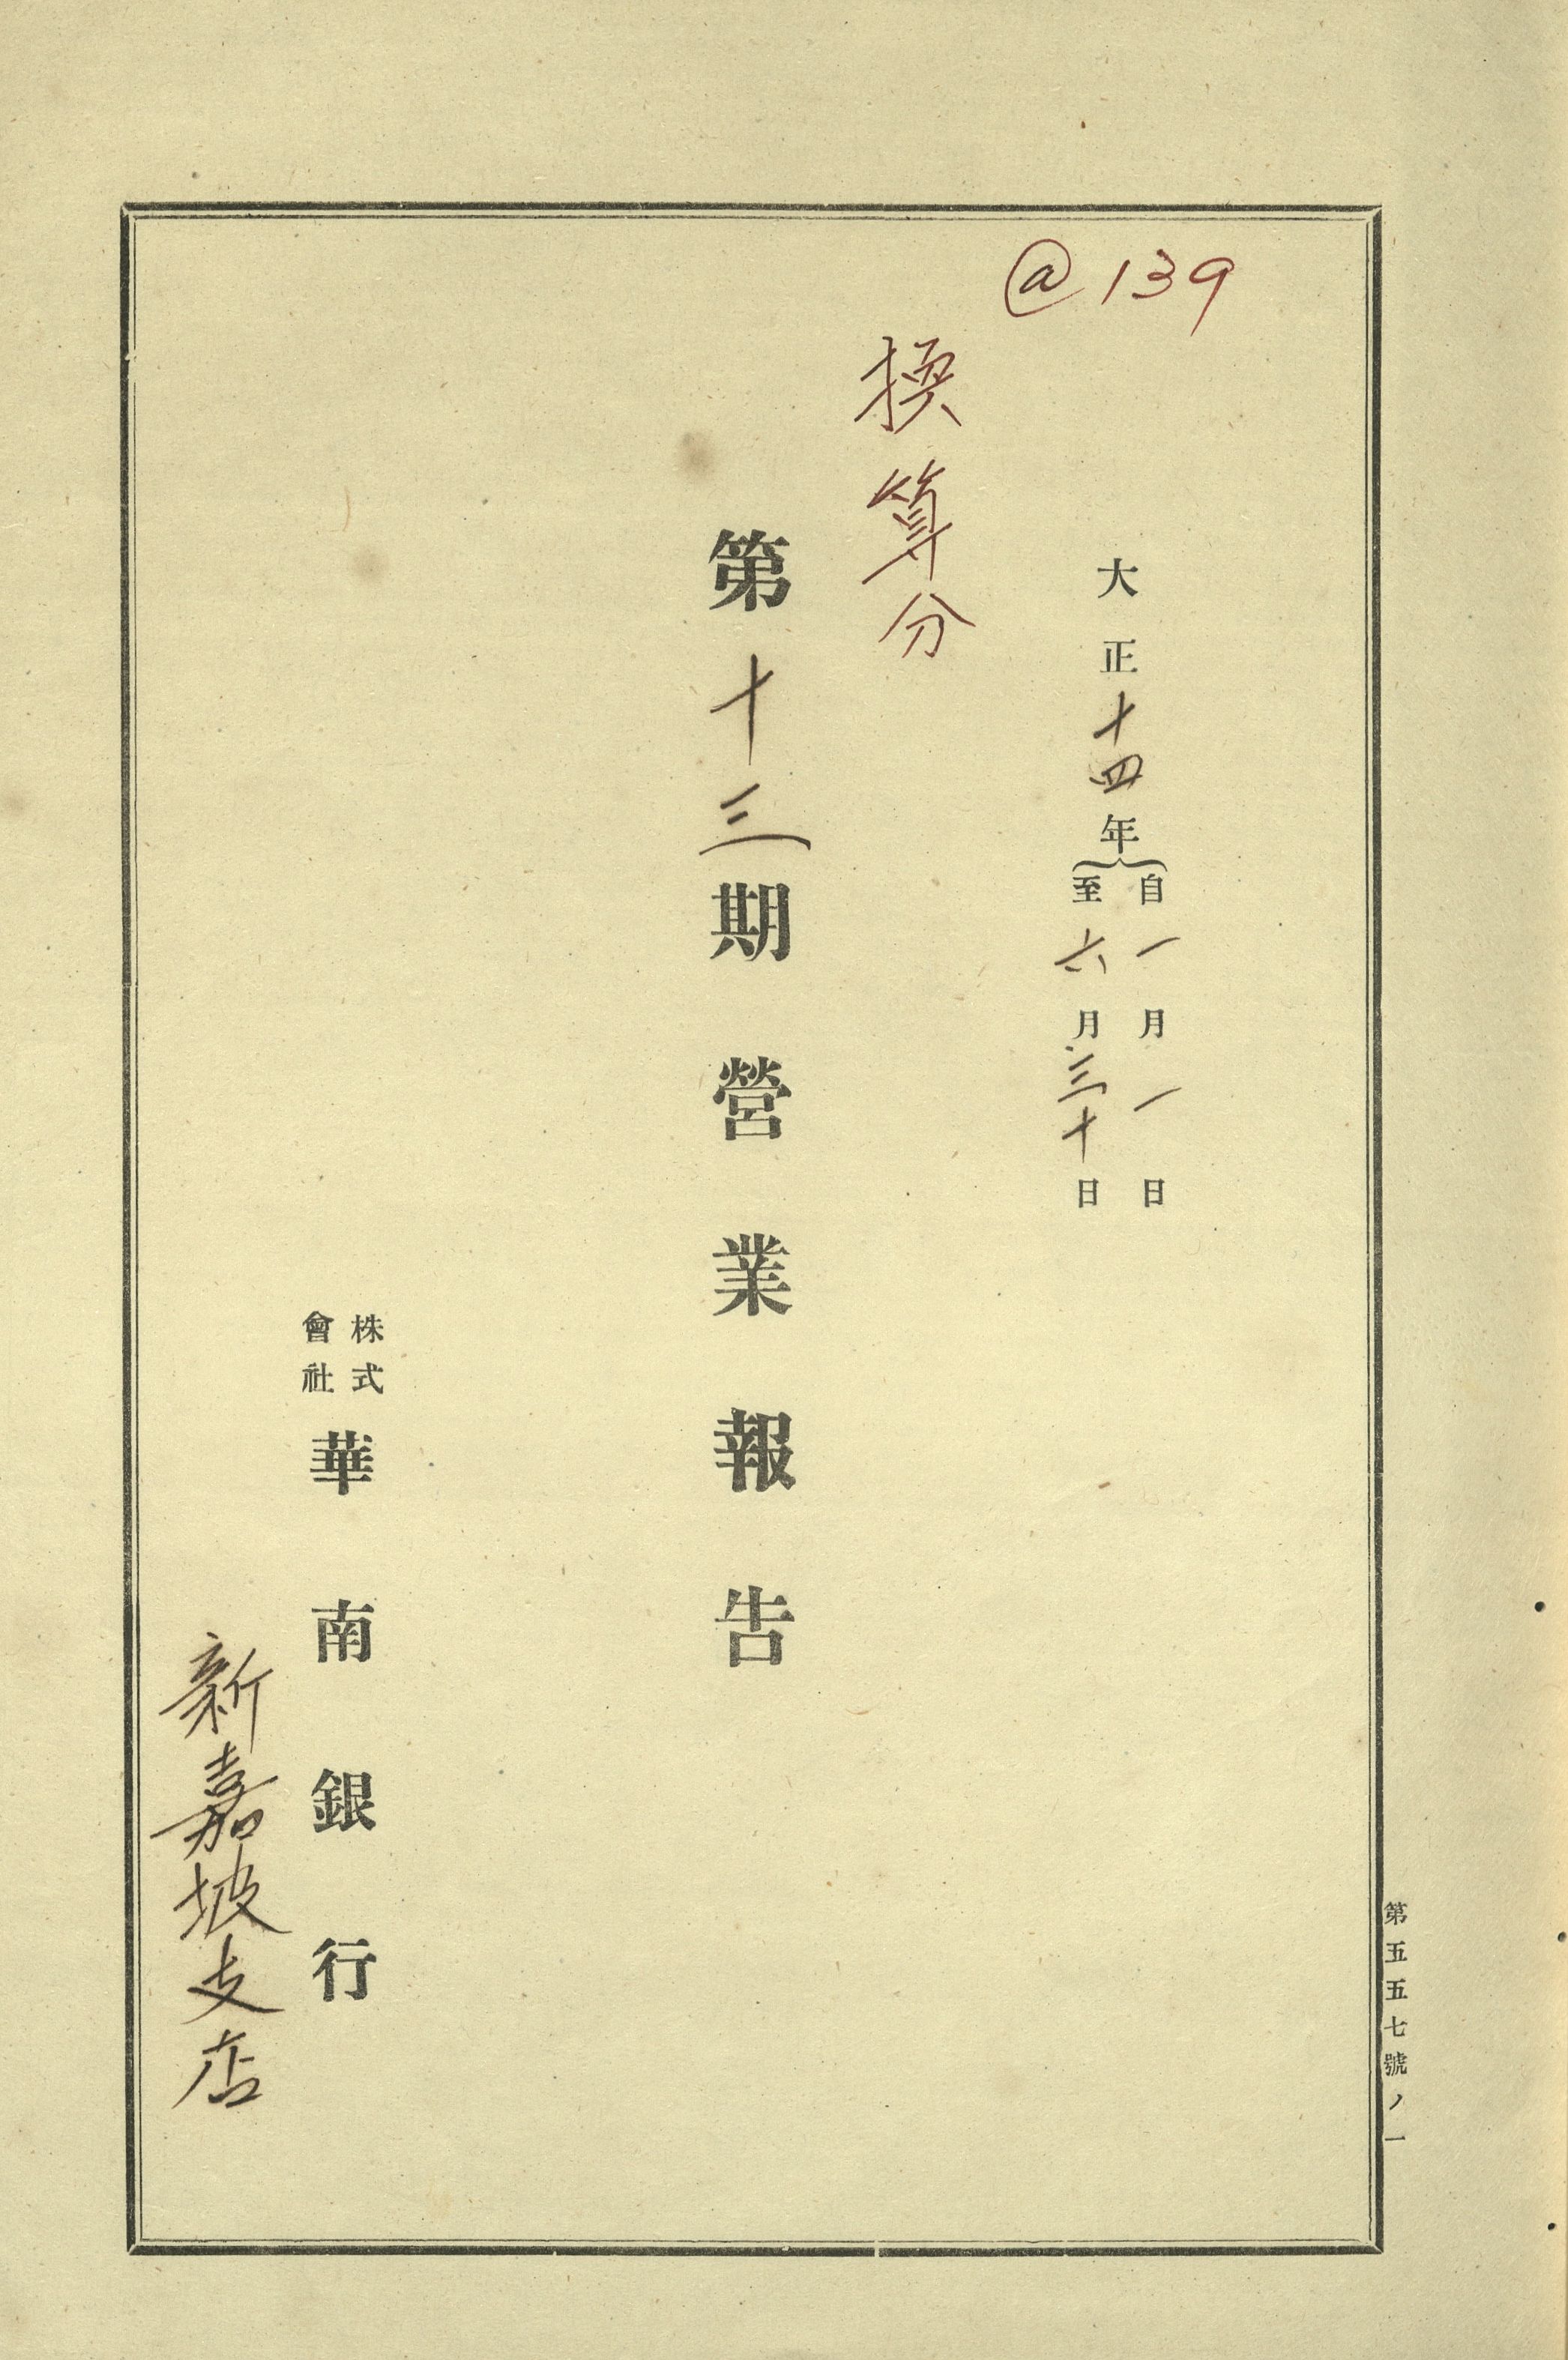 @139
大正十四年
自一月一日
至六月三十日
換算分
第十三期營業報告
株式
會社
華南銀行
新嘉坡支店
第五五七號ノ一